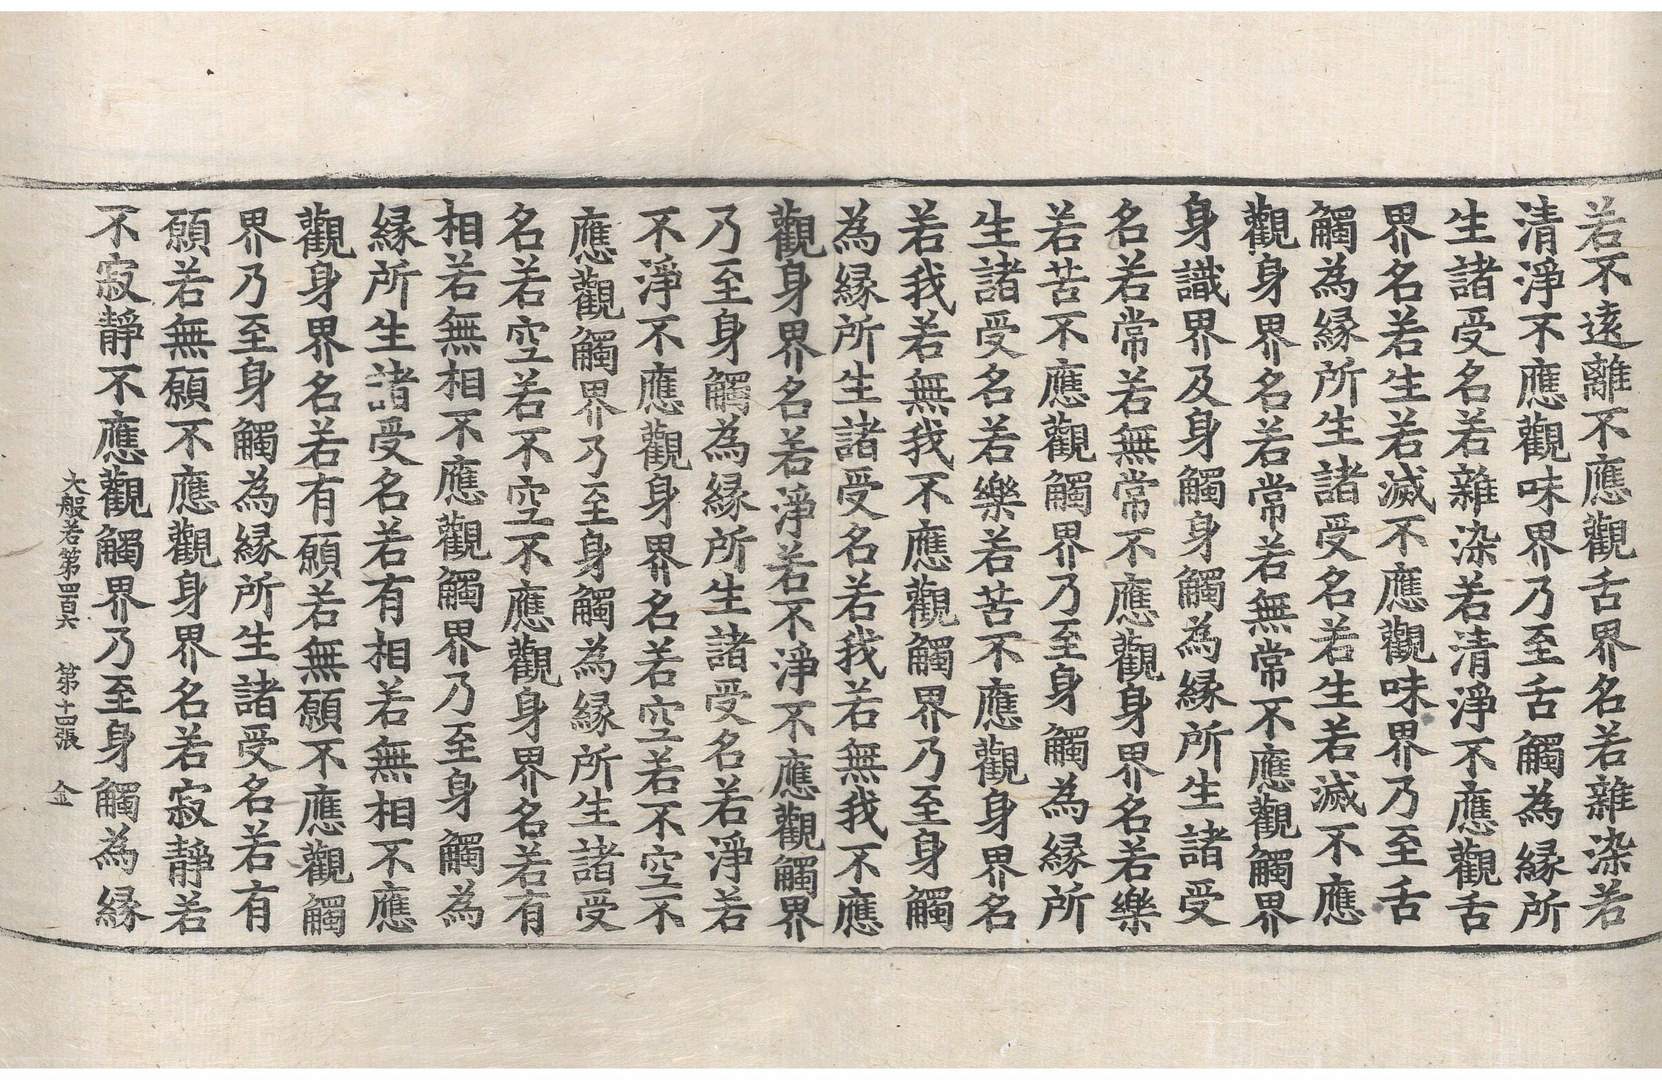 若不遠離不應觀舌界名若雜染若
清淨不應觀味界乃至舌觸為縁所
生諸受名若雜染若清淨不應觀舌
界名若生若滅不應觀味界乃至舌
觸為縁所生諸受名若生若滅不應
觀身界名若常若無常不應觀觸界
身識界及身觸身觸為縁所生諸受
名若常若無常不應觀身界名若樂
若苦不應觀觸界乃至身觸為縁所
生諸受名若樂若苦不應觀身界名
若我若無我不應觀觸界乃至身觸
為縁所生諸受名若我若無我不應
觀身界名若淨若不淨不應觀觸界
乃至身觸為縁所生諸受名若淨若
不淨不應觀身界名若空若不空不
應觀觸界乃至身觸為縁所生諸受
名若空若不空不應觀身界名若有
相若無相不應觀觸界乃至身觸為
縁所生諸受名若有相若無相不應
觀身界名若有願若無願不應觀觸
界乃至身觸為縁所生諸受名若有
願若無願不應觀身界名若寂靜若
不寂靜不應觀觸界乃至身觸為縁
大般若第四百六 第十四張 金